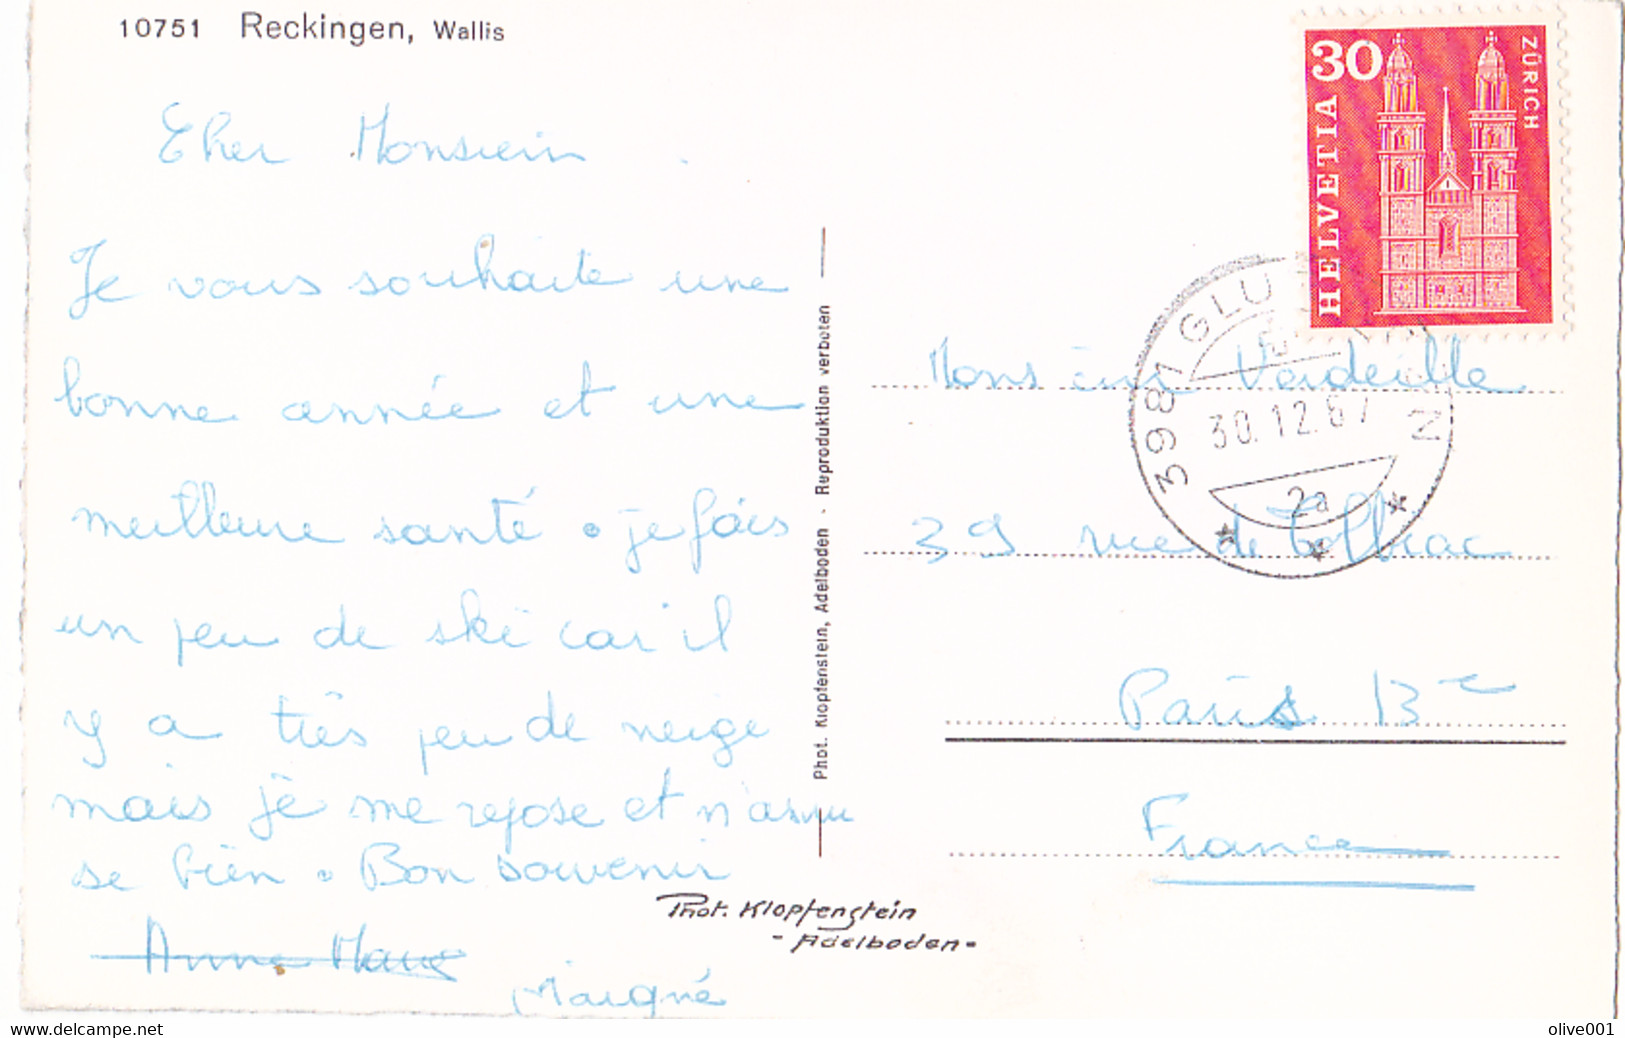 10751 Reckingen, Wallis
Cher Monsieur
Je vous souhaite une
bonne année et une
meilleure santé. je fais
un peu de ski car il
y a très peu de neige
mais je me repose et m'amu
se bien. Bon souvenir
Anne Marie
Maigné
Phot. Klopfenstein
- Adelboden -
Phot. Klopfenstein, Adelboden - Reproduktion verboten
HELVETIA
30
ZÜRICH
3981 GLU
30.12.67
2a
Monsieur Verdeille
39 rue de Tolbiac
Paris 13e
France
www.delcampe.net
olive001